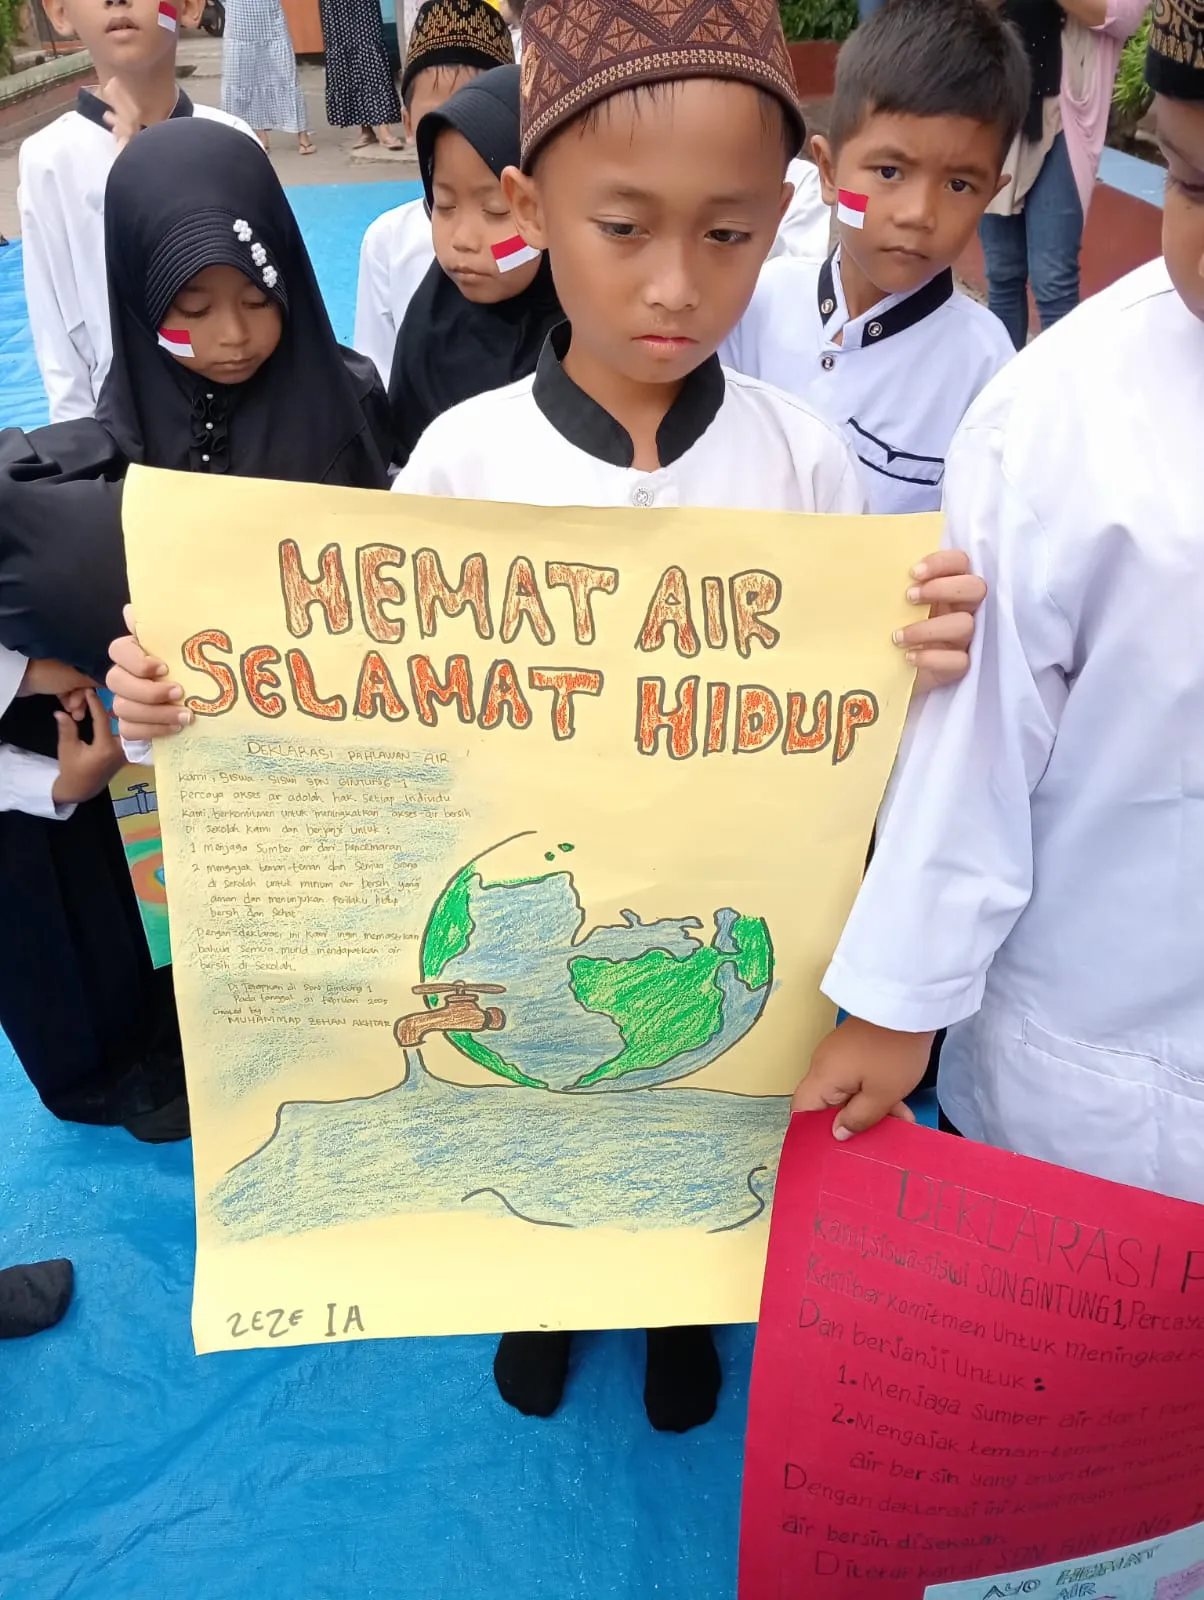 HEMAT AIR
SELAMAT HIDUP
DEKLARASI PAHLAWAN AIR !
Kami, siswa-siswi SDN GINTUNG 1
percaya akses air adalah hak setiap individu
Kami berkomitmen untuk meningkatkan akses air bersih
Di sekolah kami dan berjanji untuk :
1 menjaga sumber air dari pencemaran
2 mengajak teman-teman dan semua orang
di sekolah untuk minum air bersih yang
aman dan menunjukan perilaku hidup
bersih dan sehat
Dengan deklarasi ini kami ingin memastikan
bahwa semua murid mendapatkan air
bersih di sekolah.
Di Tetapkan di SDN Gintung 1
Pada tanggal 21 februari 2025
created by :
MUHAMMAD ZEHAN AKHTAR
ZEZE IA
DEKLARASI P
Kami, siswa-siswi SDN GINTUNG 1, Percaya
Kami berkomitmen Untuk meningkatka
Dan berjanji Untuk :
1. Menjaga Sumber air dari
2. Mengajak teman-teman dan
air bersih yang aman dan
Dengan deklerasi ini
air bersih disekolah
SDN GINTUNG
AYO HEMAT
AIR